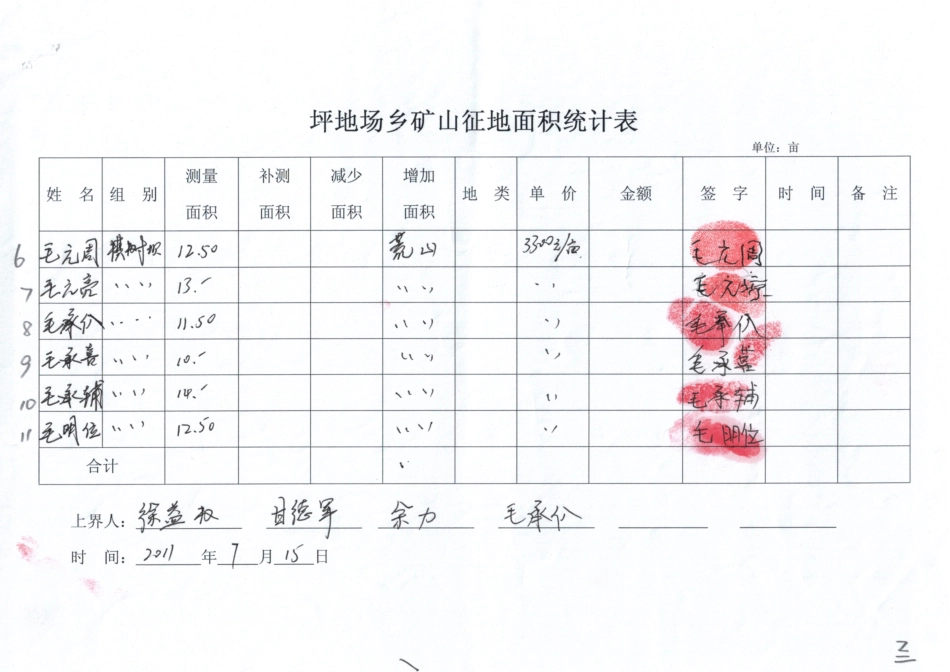 坪地场乡矿山征地面积统计表
单位：亩
姓 名 组 别 测量面积 补测面积 减少面积 增加面积 地 类 单 价 金额 签 字 时 间 备 注
6 毛元周 棋树坝 12.50 荒山 3300元/亩 毛元周
7 毛元亮 〃 〃 13.- 〃 〃 〃 毛元
8 毛承价 〃 〃 11.50 〃 〃 〃 毛承价
9 毛承喜 〃 〃 10.- 〃 〃 〃 毛承喜
10 毛承辅 〃 〃 14.- 〃 〃 〃 毛承辅
11 毛明位 〃 〃 12.50 〃 〃 〃 毛明位
合计
上界人： 徐益权 甘德军 余力 毛承价
时 间： 2011 年 7 月 15 日
2